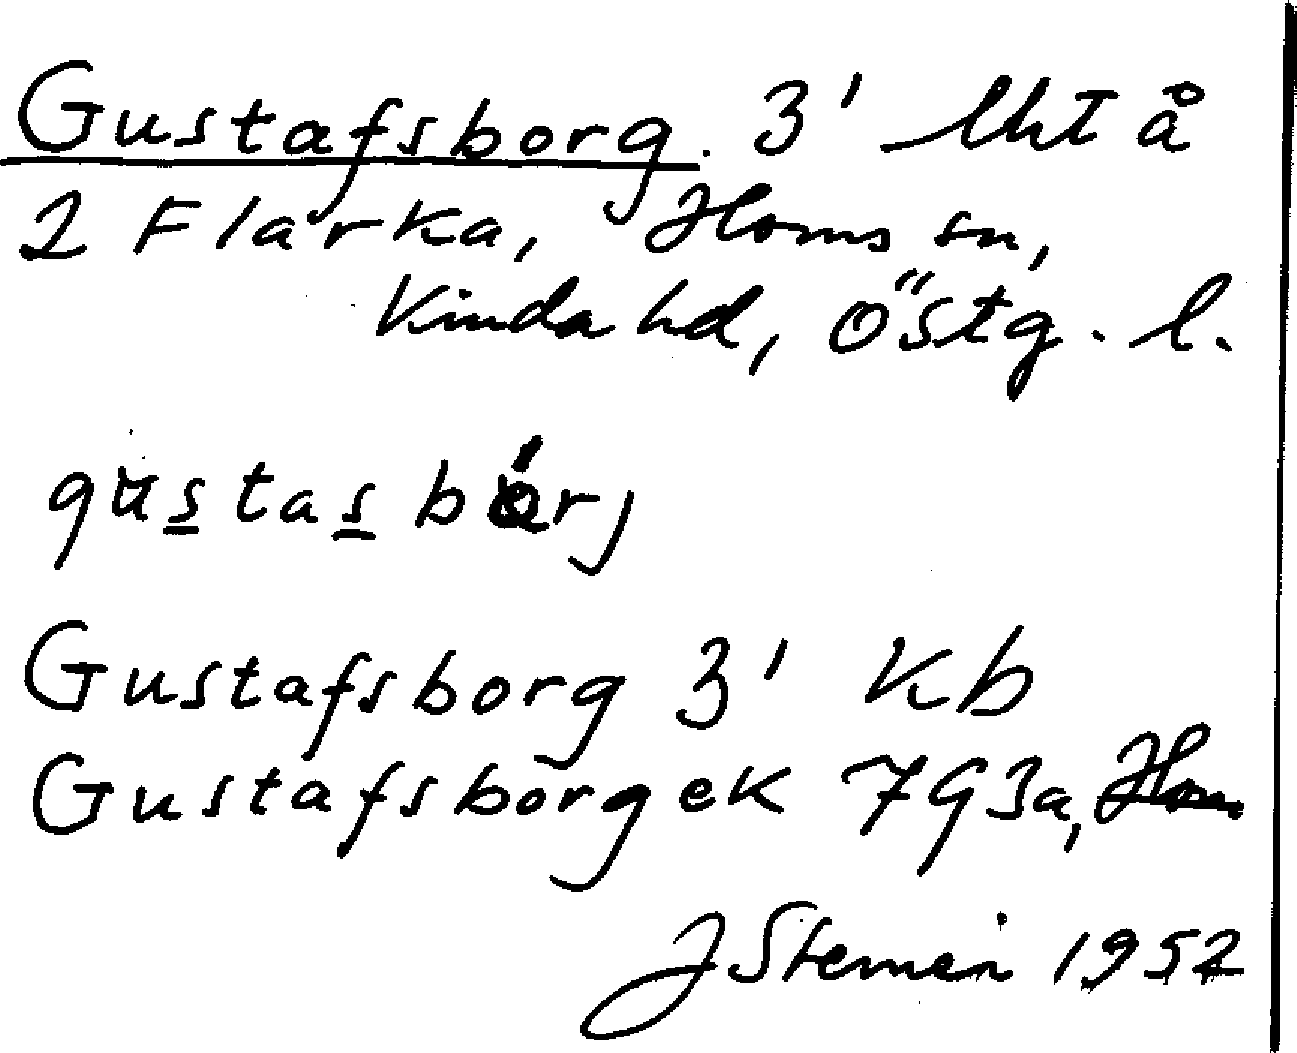 Gustafsborg. 3' lht å
2 Flarka, Homs sn,
Kinda hd, Östg. l.
gustas börj
Gustafsborg 3' Kb
Gustafsborg ek 793a, Hom
J Sterner 1952